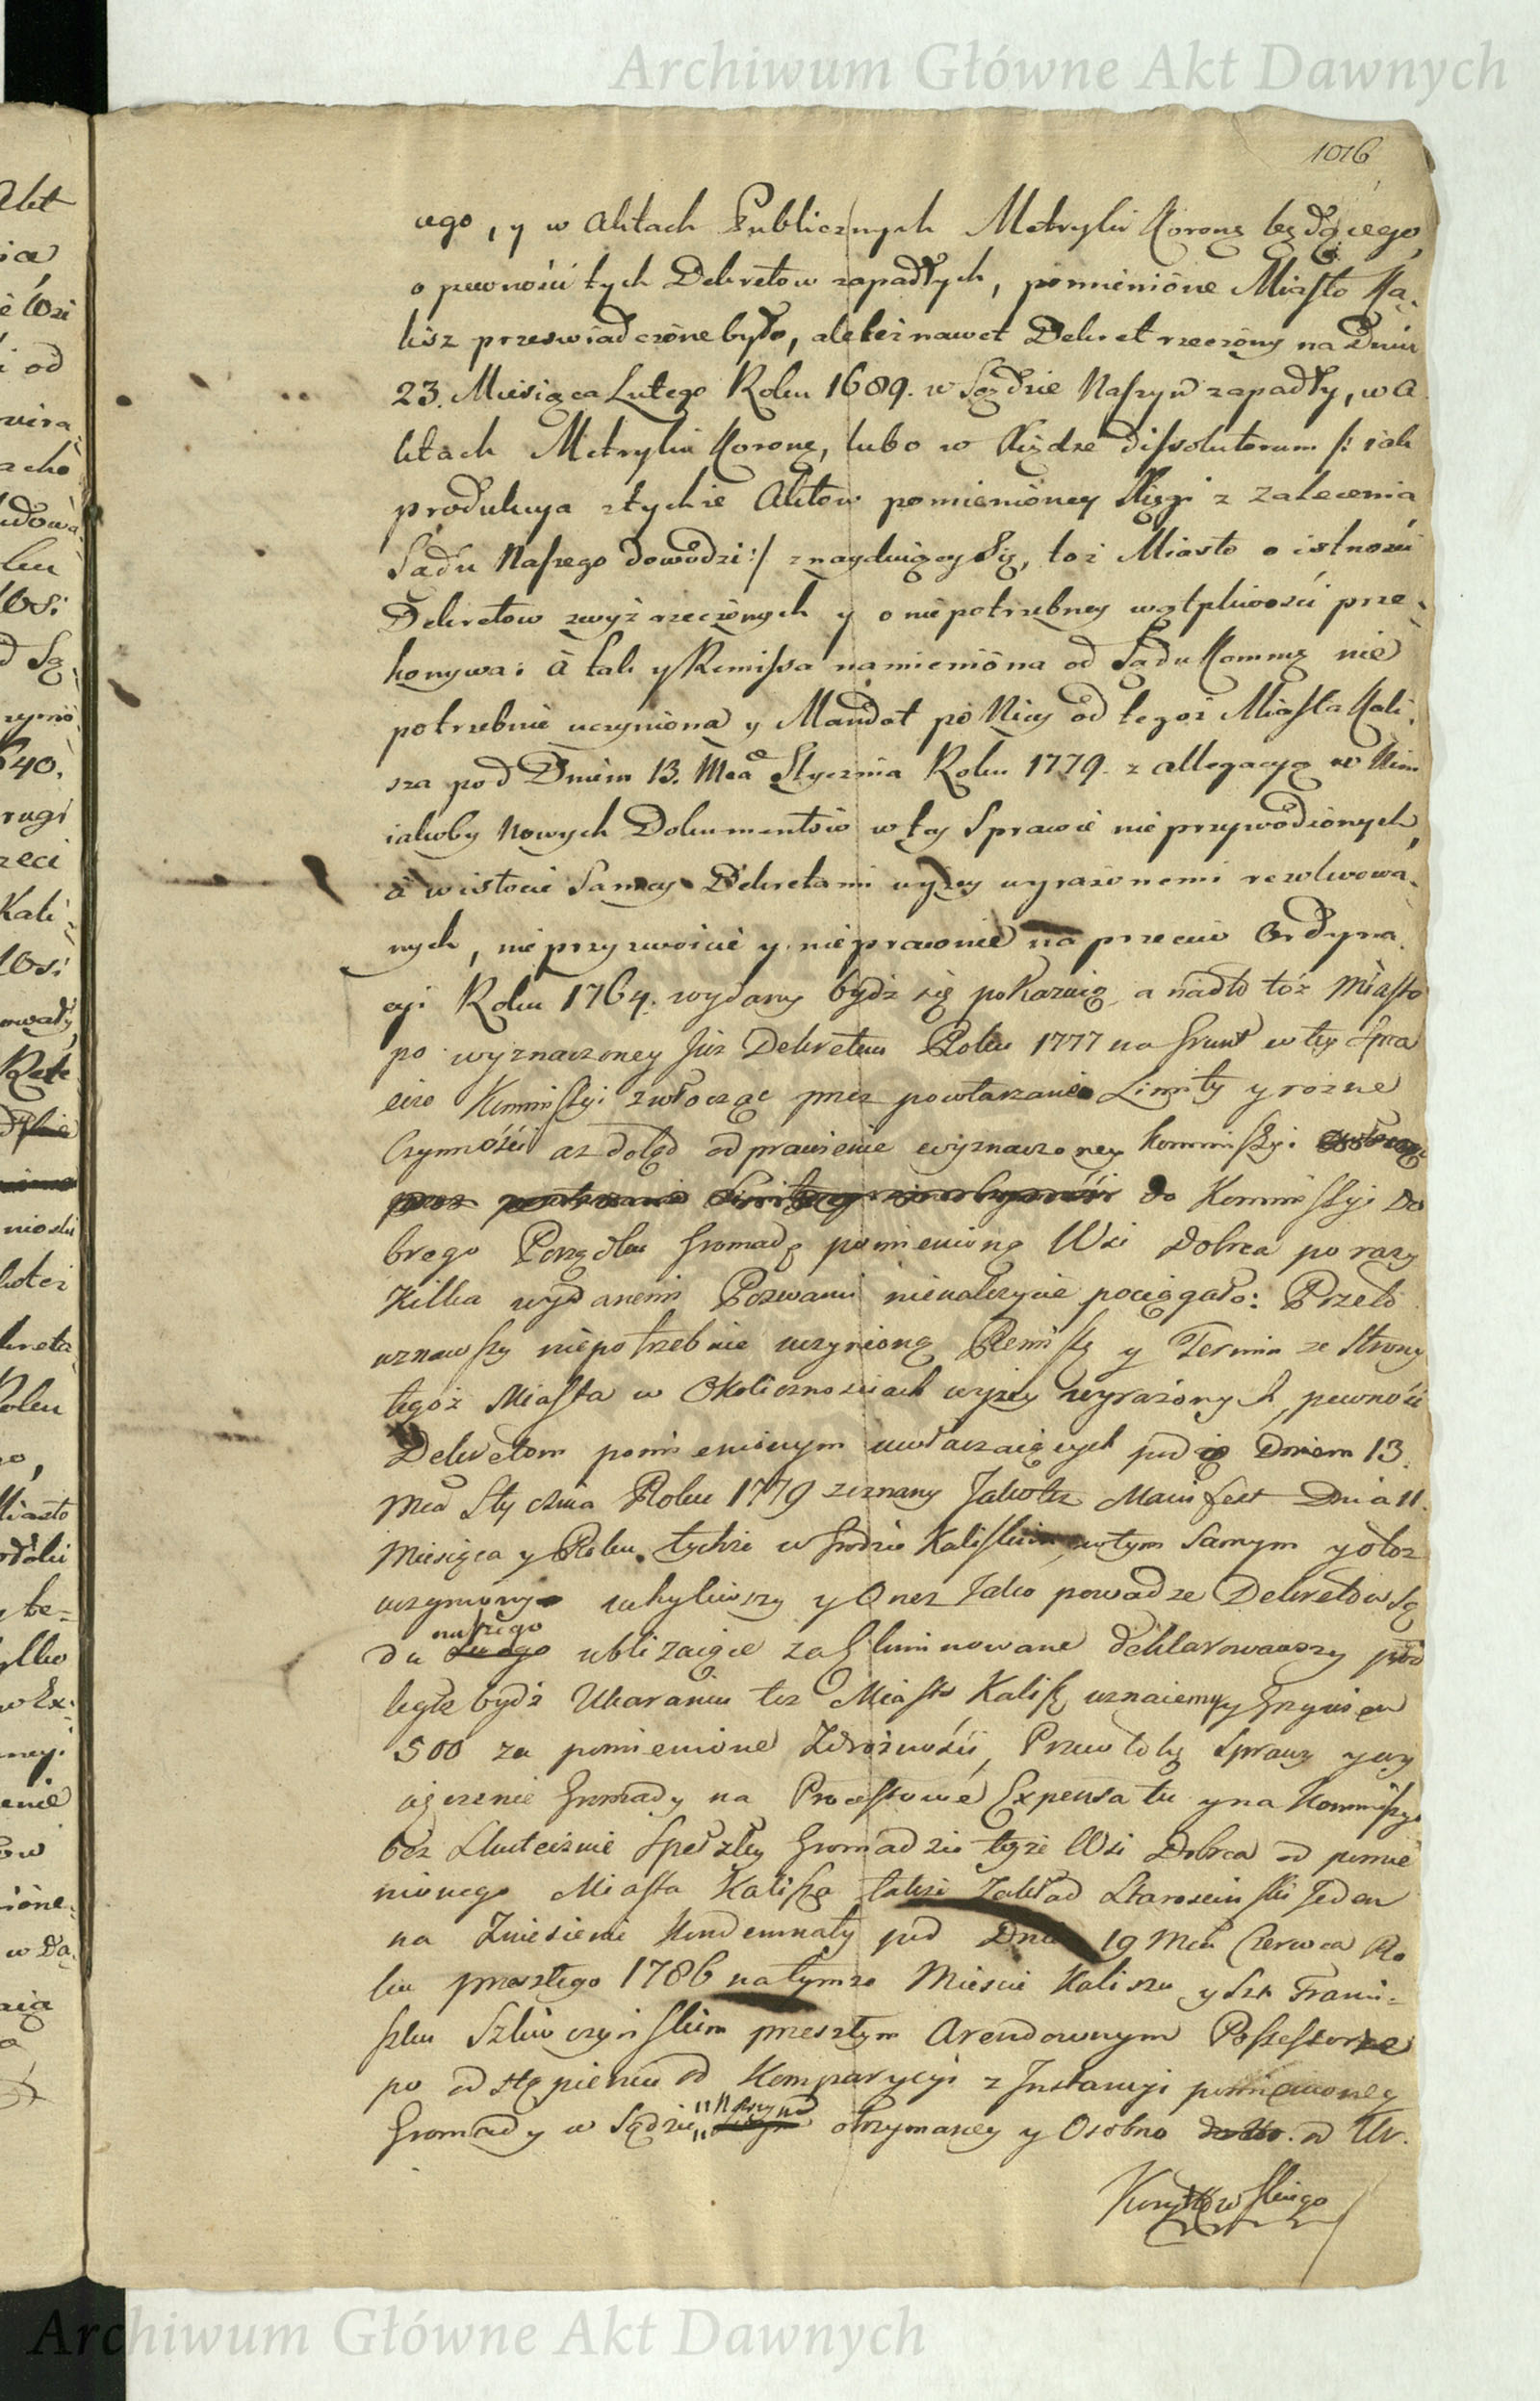 Archiwum Główne Akt Dawnych
1016
cego, y w Aktach Publicznych Metryki Korony będącego,
o pewności tych Dekretow zapadłych, pomienióne Miasto Ka-
lisz przeswiadczóne było, ale też nawet Dekret rzeczóny na Dniu
23. Miesiąca Lutego Roku 1689. w Sądzie Naszym zapadły, w A
ktach Metryki Korony, lubo w Xiędze Dissolutorum /: iak
produkcya z tychże Aktow pomienióney Xięgi z Zalecenia
Sądu Naszego dowodzi :/ znayduiącey Się, toż Miasto o istności
Dekretow zwyż rzeczónych y o niepotrzebney wątpliwości prze-
konywa: á tak y Remissa namienióna od Sądu Kommy nie
potrzebnie uczyniona y Mandat po Niey od tegoż Miasta Kali-
sza pod Dniem 13. Mca Stycznia Roku 1779. z allegacyą w Nim
iakoby Nowych Dokumentów w tey Sprawie nie przywodzionych,
á w istocie Samey Dekretami wyżey wyrażonemi rezolwowa-
nych, nieprzyzwoicie y nieprawnie na przeciw Ordyna
cyi Roku 1764. wydany bydź się pokazuią, a nadto tóż Miasto
po wyznaczoney już Dekretem Roku 1777 na Grunt w tey Spra
wie Kommissyi zwłocząc przez powtarzanie Limity y rożne
Czynności az dotąd odprawienie wyznaczoney Kommissyi
do Kommissyi Do
brego Porządku Gromadę pomienioną Wsi Dobrca po razy
Kilka wydanemi Pozwami nienależycie pociągało: Przeto
uznawszy niepotrzebnie uczynioną Remissę y Termin ze Strony
tegoż Miasta w Okolicznosciach wyżey wyrażonych, pewności
Dekretom pomienionym uwłaczaiących pod Dniem 13.
Mca Stycznia Roku 1779 zeznany Jakoteż Manifest Dnia 11.
Miesiąca y Roku tychże w Grodzie Kaliskim w tym Samym y otoz
uczyniony uchyliwszy y Onez Jako powadze Dekretów Są
du naszego ubliżaiące za Eliminowane deklarowawszy pod
ległe bydź Ukaraniu też Miasto Kalisz uznaiemy y Grzywien
500 za pomienione Zdrożności, Przewłokę Sprawy y wy
ciężenie Gromady na Processowe Expensa tu y na Kommissyi
bez Skutecznie Spełzłey Gromadzie teyże Wsi Dobrca od pomie
nionego Miasta Kalisza także Zakład Starosciński Jeden
na Zniesienie Kondemnaty pod Dniem 19 Mca Czerwca Ro
ku przeszłego 1786 na tymze Miescie Kaliszu y Szl: Franci-
szku Szkliwczyńskim przeszłym Arendownym Possessorze
po odstąpieniu od Komparycyi z Instancyi pomienioney
Gromady w Sądzie otrzymaney y Osobno od Ur.
Archiwum Główne Akt Dawnych